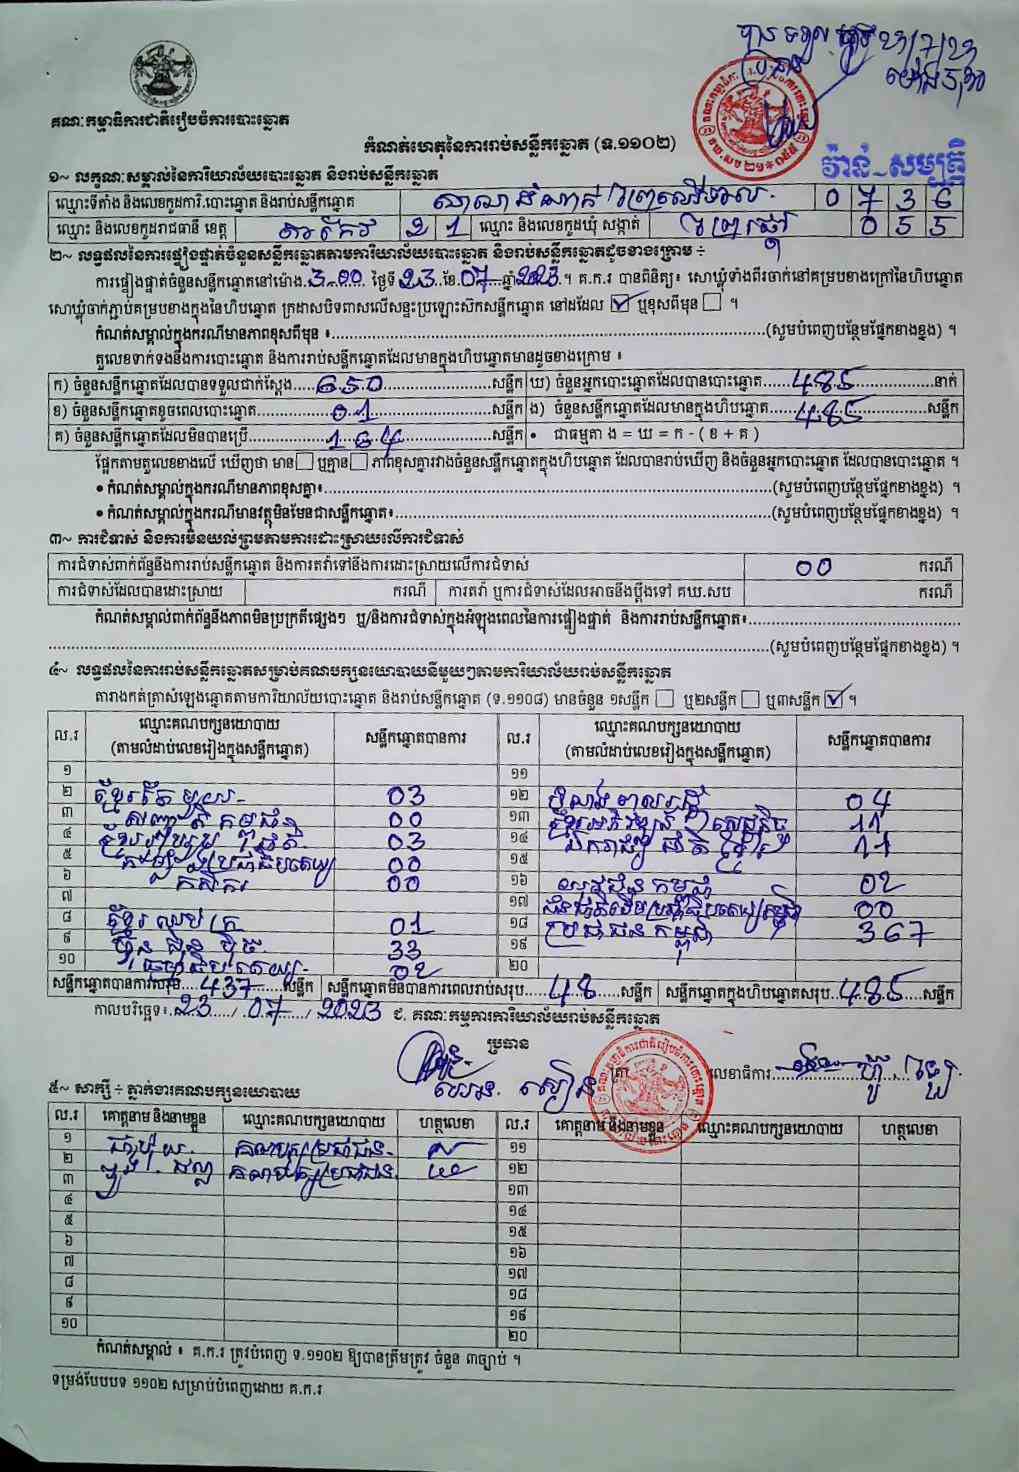 បាន ទទួល ថ្ងៃទី 23/7/23
ម៉ោង 5:30
ប្រធាន
វ៉ាន់-សម្បត្តិ
គណៈកម្មាធិការជាតិរៀបចំការបោះឆ្នោត
កំណត់ហេតុនៃការរាប់សន្លឹកឆ្នោត (ទ.១១០២)
១~ លក្ខណៈសម្គាល់នៃការិយាល័យបោះឆ្នោត និងរាប់សន្លឹកឆ្នោត
ឈ្មោះទីតាំង និងលេខកូដការិ.បោះឆ្នោត និងរាប់សន្លឹកឆ្នោត សាលាដំណាក់ 0 7 3 6
ឈ្មោះ និងលេខកូដរាជធានី ខេត្ត តាកែវ 2 1 ឈ្មោះ និងលេខកូដឃុំ សង្កាត់ ព្រៃផ្តៅ 0 5 5
២~ លទ្ធផលនៃការផ្ទៀងផ្ទាត់ចំនួនសន្លឹកឆ្នោតតាមការិយាល័យបោះឆ្នោត និងរាប់សន្លឹកឆ្នោតដូចខាងក្រោម ÷
ការផ្ទៀងផ្ទាត់ចំនួនសន្លឹកឆ្នោតនៅម៉ោង.3.00 ថ្ងៃទី 23 ខែ.07 ឆ្នាំ2023.។ គ.ក.រ បានពិនិត្យ៖ សោឃ្លុំទាំងពីរចាក់នៅគម្របខាងក្រៅនៃហិបឆ្នោត
សោឃ្លុំចាក់ភ្ជាប់គម្របខាងក្នុងនៃហិបឆ្នោត ក្រដាសបិទពាសលើសន្ទះប្រឡោះស៊កសន្លឹកឆ្នោត នៅដដែល ☑ ឬខុសពីមុន ☐ ។
កំណត់សម្គាល់ក្នុងករណីមានភាពខុសពីមុន ៖...(សូមបំពេញបន្ថែមផ្នែកខាងខ្នង) ។
តួលេខទាក់ទងនឹងការបោះឆ្នោត និងការរាប់សន្លឹកឆ្នោតដែលមានក្នុងហិបឆ្នោតមានដូចខាងក្រោម ៖
ក) ចំនួនសន្លឹកឆ្នោតដែលបានទទួលជាក់ស្តែង...650...សន្លឹក ឃ) ចំនួនអ្នកបោះឆ្នោតដែលបានបោះឆ្នោត...485...នាក់
ខ) ចំនួនសន្លឹកឆ្នោតខូចពេលបោះឆ្នោត...01...សន្លឹក ង) ចំនួនសន្លឹកឆ្នោតដែលមានក្នុងហិបឆ្នោត...485...សន្លឹក
គ) ចំនួនសន្លឹកឆ្នោតដែលមិនបានប្រើ...164...សន្លឹក • ជាធម្មតា ង = ឃ = ក - ( ខ + គ )
ផ្អែកតាមតួលេខខាងលើ ឃើញថា មាន☐ ឬគ្មាន☐ ភាពខុសគ្នារវាងចំនួនសន្លឹកឆ្នោតក្នុងហិបឆ្នោត ដែលបានរាប់ឃើញ និងចំនួនអ្នកបោះឆ្នោត ដែលបានបោះឆ្នោត ។
• កំណត់សម្គាល់ក្នុងករណីមានភាពខុសគ្នា៖...(សូមបំពេញបន្ថែមផ្នែកខាងខ្នង) ។
• កំណត់សម្គាល់ក្នុងករណីមានវត្ថុមិនមែនជាសន្លឹកឆ្នោត៖...(សូមបំពេញបន្ថែមផ្នែកខាងខ្នង) ។
៣~ ការជំទាស់ និងការមិនយល់ព្រមតាមការដោះស្រាយលើការជំទាស់
ការជំទាស់ពាក់ព័ន្ធនឹងការរាប់សន្លឹកឆ្នោត និងការតវ៉ាទៅនឹងការដោះស្រាយលើការជំទាស់ 00 ករណី
ការជំទាស់ដែលបានដោះស្រាយ ករណី ការតវ៉ា ឬការជំទាស់ដែលអាចនឹងប្តឹងទៅ គឃ.សប ករណី
កំណត់សម្គាល់ពាក់ព័ន្ធនឹងភាពមិនប្រក្រតីផ្សេងៗ ឬ/និងការជំទាស់ក្នុងអំឡុងពេលនៃការផ្ទៀងផ្ទាត់ និងការរាប់សន្លឹកឆ្នោត៖...
...(សូមបំពេញបន្ថែមផ្នែកខាងខ្នង) ។
៤~ លទ្ធផលនៃការរាប់សន្លឹកឆ្នោតសម្រាប់គណបក្សនយោបាយនីមួយៗតាមការិយាល័យរាប់សន្លឹកឆ្នោត
តារាងកត់ត្រាសំឡេងឆ្នោតតាមការិយាល័យបោះឆ្នោត និងរាប់សន្លឹកឆ្នោត (ទ.១១០៨) មានចំនួន ១សន្លឹក ☐ ឬ២សន្លឹក ☐ ឬ៣សន្លឹក ☑ ។
ល.រ ឈ្មោះគណបក្សនយោបាយ (តាមលំដាប់លេខរៀងក្នុងសន្លឹកឆ្នោត) សន្លឹកឆ្នោតបានការ ល.រ ឈ្មោះគណបក្សនយោបាយ (តាមលំដាប់លេខរៀងក្នុងសន្លឹកឆ្នោត) សន្លឹកឆ្នោតបានការ
១ ១១
២ ខ្មែរតែមួយ 03 ១២ 04
៣ សញ្ជាតិកម្ពុជា 00 ១៣ ខ្មែរអភិវឌ្ឍន៍សេដ្ឋកិច្ច 11
៤ ខ្មែររួបរួមជាតិ 03 ១៤ ឯករាជ្យ 11
៥ 00 ១៥
៦ កសិករ 00 ១៦ យុវជនកម្ពុជា 02
៧ ១៧ 00
៨ ខ្មែរឈប់ក្រ 01 ១៨ ប្រជាជនកម្ពុជា 367
៩ ហ្វ៊ុនស៊ិនប៉ិច 33 ១៩
១០ ធម្មាធិបតេយ្យ 02 ២០
សន្លឹកឆ្នោតបានការសរុប...437...សន្លឹក សន្លឹកឆ្នោតមិនបានការពេលរាប់សរុប...48...សន្លឹក សន្លឹកឆ្នោតក្នុងហិបឆ្នោតសរុប...485...សន្លឹក
កាលបរិច្ឆេទ៖.23/07/2023 ជ. គណៈកម្មការការិយាល័យរាប់សន្លឹកឆ្នោត
ប្រធាន
ត្រា លេខាធិការ
៥~ សាក្សី ÷ ភ្នាក់ងារគណបក្សនយោបាយ
ល.រ គោត្តនាម និងនាមខ្លួន ឈ្មោះគណបក្សនយោបាយ ហត្ថលេខា ល.រ គោត្តនាម និងនាមខ្លួន ឈ្មោះគណបក្សនយោបាយ ហត្ថលេខា
១ គណបក្សប្រជាជន ១១
២ គណបក្សប្រជាជន ១២
៣ ១៣
៤ ១៤
៥ ១៥
៦ ១៦
៧ ១៧
៨ ១៨
៩ ១៩
១០ ២០
កំណត់សម្គាល់ ៖ គ.ក.រ ត្រូវបំពេញ ទ.១១០២ ឱ្យបានត្រឹមត្រូវ ចំនួន ៣ច្បាប់ ។
ទម្រង់បែបបទ ១១០២ សម្រាប់បំពេញដោយ គ.ក.រ